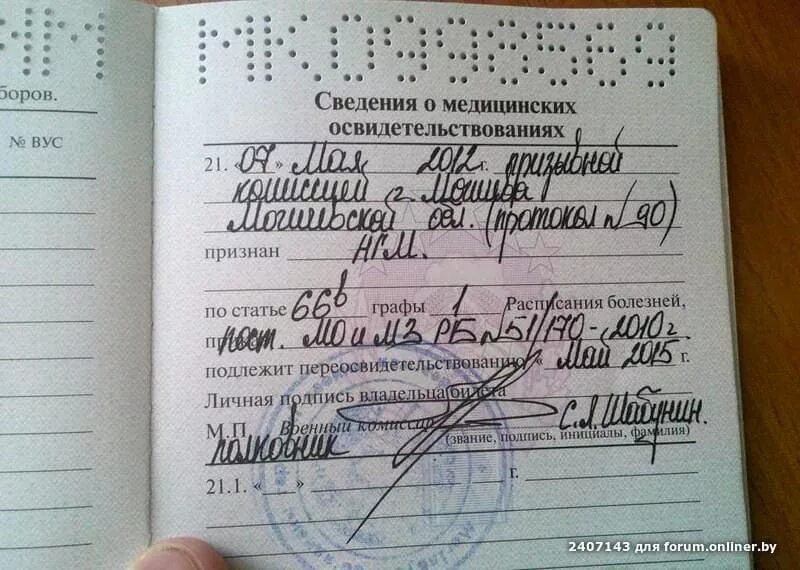 МК 0998569
боров.
№ ВУС
Сведения о медицинских
освидетельствованиях
21. «07» Мая 2012 г. призывной
комиссией г.
Могилевской обл. (протокол № 90)
признан НГМ.
по статье 66в графы 1 Расписания болезней,
пост. МО и МЗ РБ № 51/170-2010г.
подлежит переосвидетельствованию « Май 2015 г.
Личная подпись владельца билета
М.П. Военный комиссар
полковник С.А. Шабунин.
(звание, подпись, инициалы, фамилия)
21.1. «___» г.
2407143 для forum.onliner.by